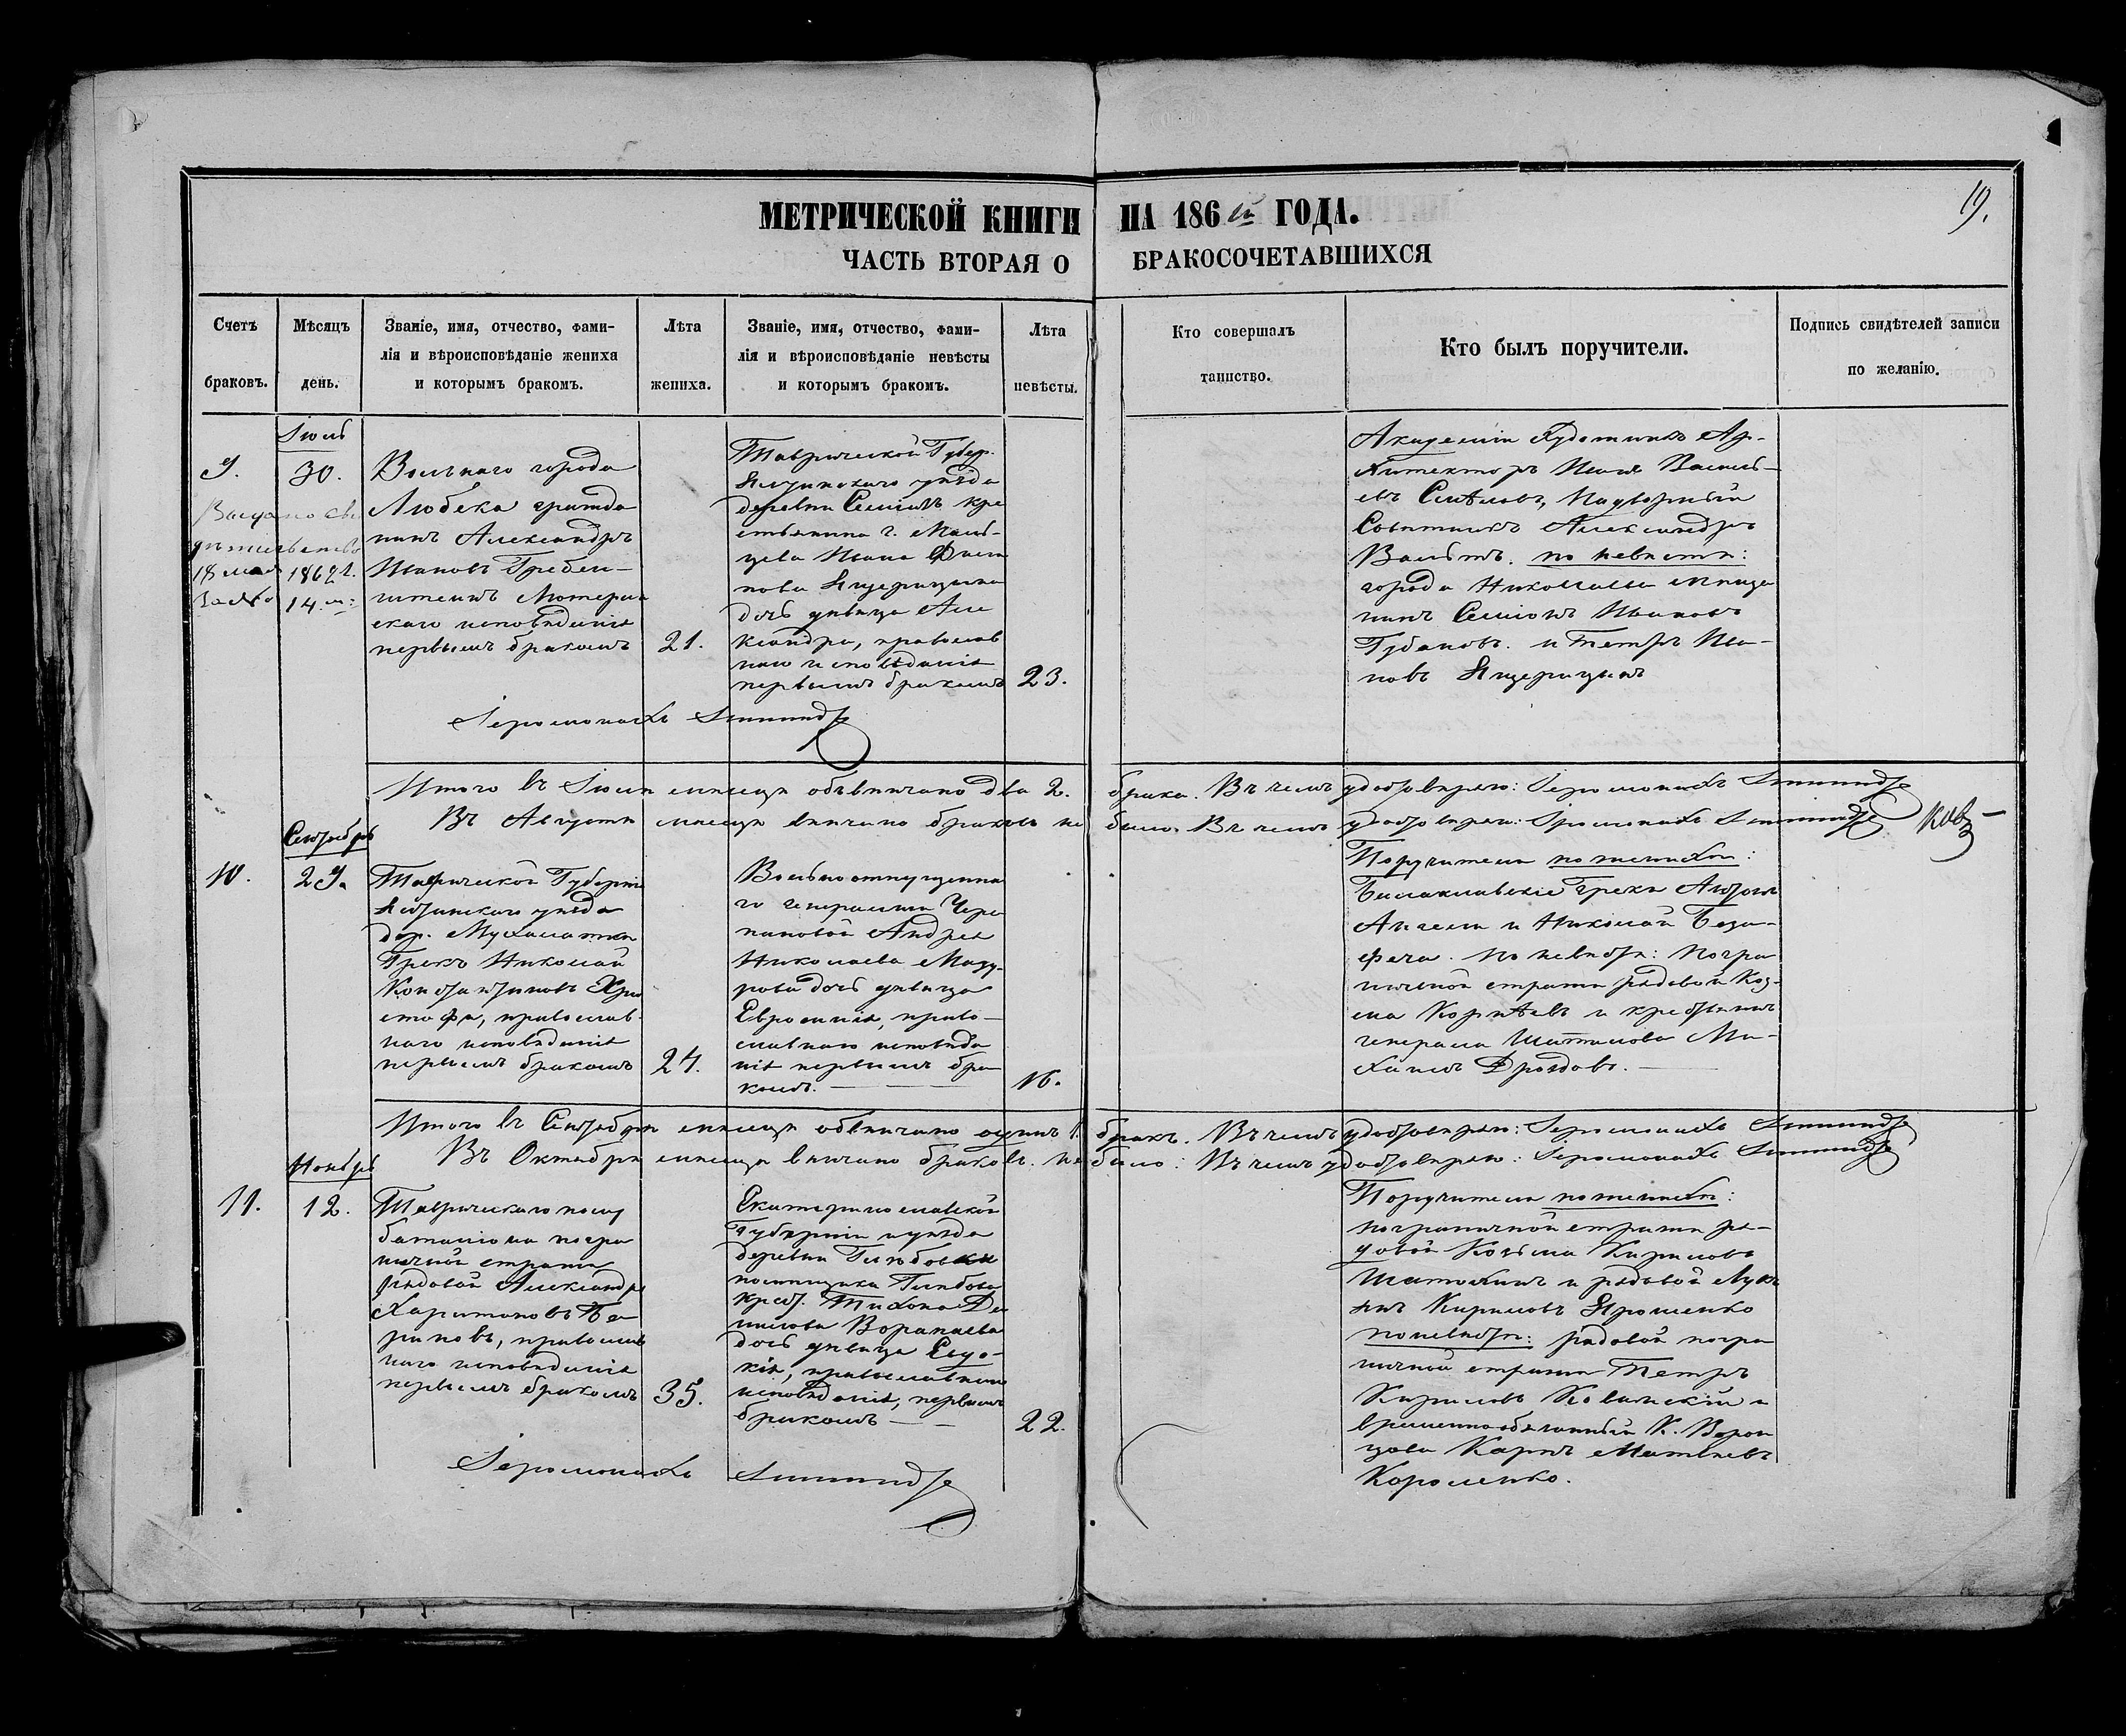 19.
МЕТРИЧЕСКОЙ КНИГИ НА 186 ГОДА.
ЧАСТЬ ВТОРАЯ О БРАКОСОЧЕТАВШИХСЯ
Счетъ
браковъ.
Мѣсяцъ
день.
Званіе, имя, отчество, фами-
лія и вѣроисповѣданіе жениха
и которымъ бракомъ.
Лѣта
жениха.
Званіе, имя, отчество, фами-
лія и вѣроисповѣданіе невѣсты
и которымъ бракомъ.
Лѣта
невѣсты.
Кто совершалъ
таинство.
Кто былъ поручители.
Подпись свидѣтелей записи
по желанію.
Іюль
9.
30.
Выдано сви
дѣтельство
18 мая 1862 г.
за № 14.
Вольнаго города
Любека гражда
нинъ Александръ
Ивановъ
Лютеран
скаго исповѣданія
первымъ бракомъ
21.
Таврической Губер.
Ялтинскаго уѣзда
деревни Симеизъ кре
стьянина г. Маль-
цева Ивана
нова Ящерицына
дочь дѣвица Але
ксандра, православ
наго исповѣданія
первымъ бракомъ
23.
Академіи Художникъ Ар-
хитекторъ Иванъ Василь-
евъ Надворный
Совѣтникъ Александръ
по невѣстѣ:
города Николаева мѣща
нинъ Семіонъ Ивановъ
Губановъ. и Петръ Ива-
новъ Ящерицынъ
Іеромонахъ
Итого въ Іюлѣ мѣсяцѣ обвѣнчано два 2. брака. Въ чемъ удостовѣряю: Іеромонахъ
Въ Августѣ мѣсяцѣ вѣнчано браковъ не было. Въ чемъ удостовѣряю: Іеромонахъ
Сентябрь
10.
29.
Таврической Губерніи
Ялтинскаго уѣзда
дер. Мухалатки
Грекъ Николай
Константиновъ Хри
стофа, православ
наго исповѣданія
первымъ бракомъ
24.
Вольноотпущенна
го генеральши Чере
пановой Андрея
Николаева Мазу-
рова дочь дѣвица
Евросинія, право-
славнаго исповѣда
нія первымъ бра
комъ.
16.
Поручители по женихѣ:
Балаклавскіе Греки Антонъ
Ангели и Николай
По невѣстѣ: Погра
ничной стражи рядовой Коз-
ма и крестьянинъ
генерала Шатилова Ми-
хаилъ Дроздовъ.
Итого въ Сентябрѣ мѣсяцѣ обвѣнчано одинъ 1. бракъ. Въ чемъ удостовѣряю: Іеромонахъ
Въ Октябрѣ мѣсяцѣ вѣнчано браковъ не было: Въ чемъ удостовѣряю: Іеромонахъ
Ноябрь
11.
12.
Таврическаго полу
баталіона погра
ничной стражи
рядовой Александръ
Харитоновъ Ба
риновъ, православ
наго исповѣданія
первымъ бракомъ
35.
Екатеринославской
Губерніи и уѣзда
деревни Глѣбовки
помѣщика Глѣбова
крест. Тихона Да
нилова Воропаева
дочь дѣвица Евдо-
кія, православнаго
исповѣданія, первымъ
бракомъ
22.
Поручители по женихѣ:
пограничной стражи ря-
довой Козьма Кириловъ
и рядовой Лукь
янъ Кириловъ Ярошенко
по невѣстѣ: рядовой погра
ничной стражи Петръ
Кириловъ и
временнообязанный К. Ворон
цова Карпъ Матвѣевъ
Короленко.
Іеромонахъ